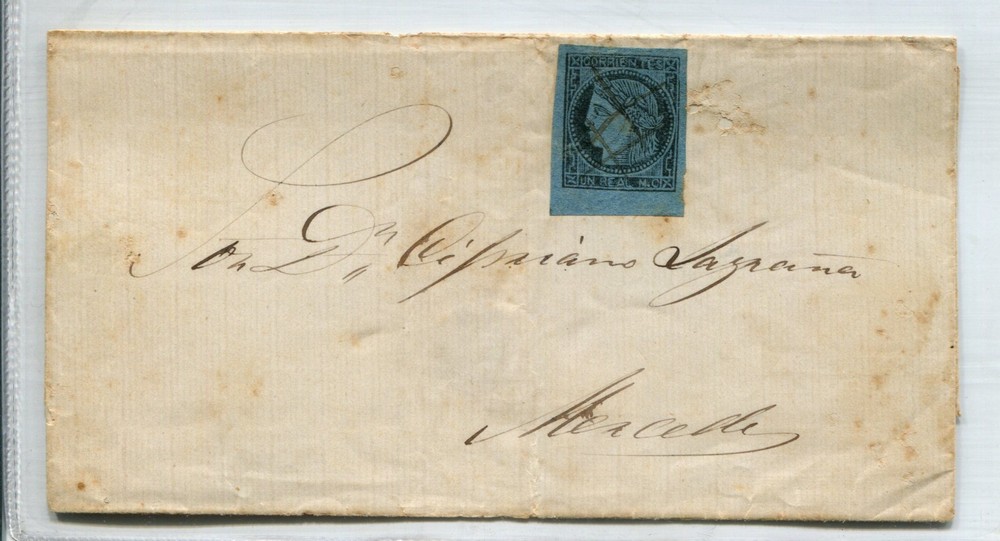 CORRIENTES
UN REAL M.C.
Sor Dn Cipriano Lagraña
Mercedes